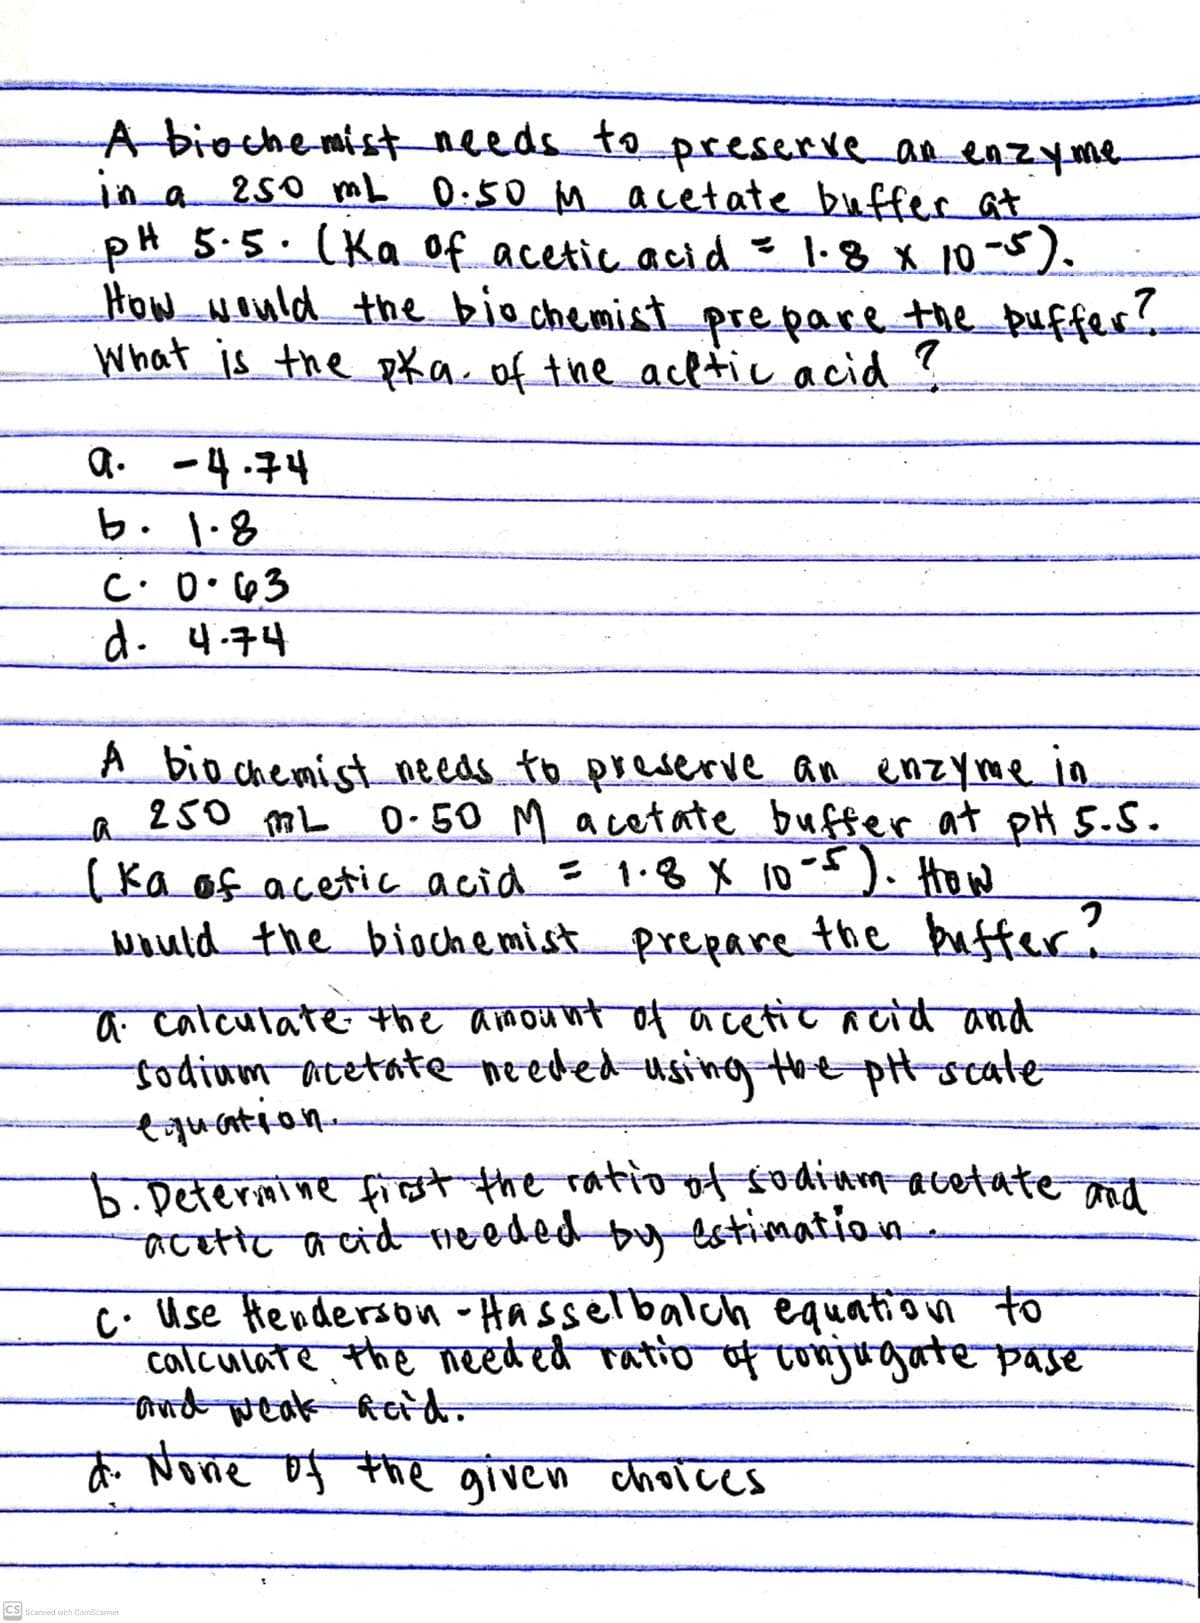 A biochemist needs to preserve an enzyme
in a 250 mL 0.50 M acetate buffer at
pH 5.5. (Ka of acetic acid = 1.8 x 10-5).
How would the biochemist prepare the buffer?
What is the pKa. of the acetic acid ?
a. -4.74
b. 1.8
c. 0.63
d. 4.74
A biochemist needs to preserve an enzyme in
a 250 mL 0.50 M acetate buffer at pH 5.5.
(Ka of acetic acid = 1.8 X 10-5). How
would the biochemist prepare the buffer?
a. calculate the amount of acetic acid and
sodium acetate needed using the pH scale
equation.
b. Determine first the ratio of sodium acetate and
acetic acid needed by estimation.
c. Use Henderson-Hasselbalch equation to
calculate the needed ratio of conjugate base
and weak acid.
d. None of the given choices
CS Scanned with CamScanner